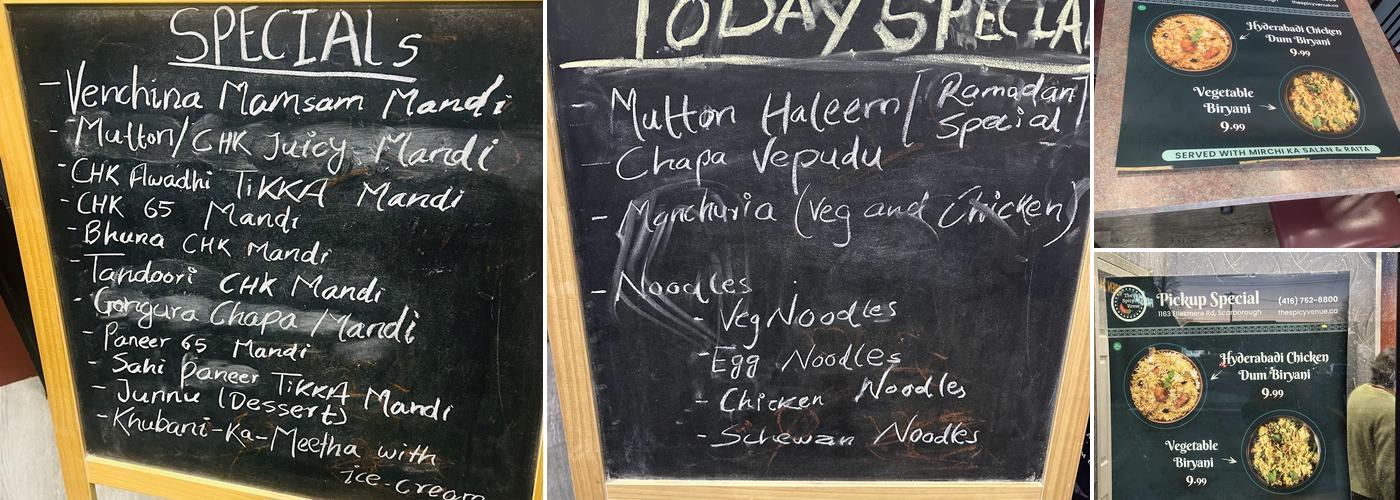 SPECIALS
- Venchina Mamsam Mandi
- Mutton/CHK Juicy Mandi
- CHK Awadhi TIKKA Mandi
- CHK 65 Mandi
- Bhuna CHK Mandi
- Tandoori CHK Mandi
- Gongura Chapa Mandi
- Paneer 65 Mandi
- Sahi Paneer TIKKA Mandi
- Junnu (Dessert)
- Khubani-Ka-Meetha with
ice-cream
TODAY SPECIAL
- Mutton Haleem [Ramadan
Special]
- Chapa Vepudu
- Manchuria (Veg and Chicken)
- Noodles
- Veg Noodles
- Egg Noodles
- Chicken Noodles
- Schewan Noodles
thespicyvenue.ca
Hyderabadi Chicken
Dum Biryani
9.99
Vegetable
Biryani
9.99
SERVED WITH MIRCHI KA SALAN & RAITA
The
Spicy
Venue
Pickup Special
(416) 752-8800
1163 Ellesmere Rd, Scarborough
thespicyvenue.ca
Hyderabadi Chicken
Dum Biryani
9.99
Vegetable
Biryani
9.99